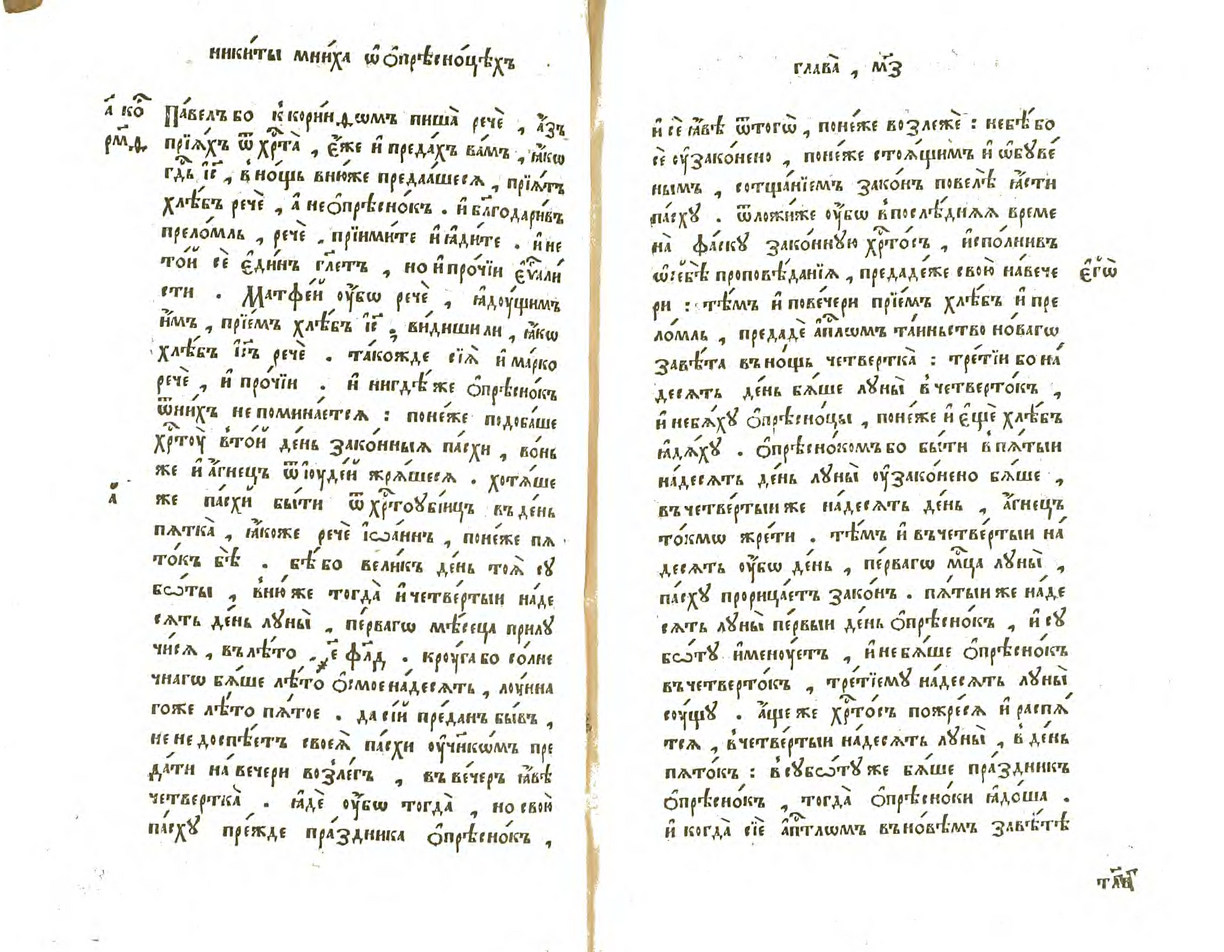 ники́ты мни́ха ѡ҆ ѻ҆прѣсно́цѣхъ
а҃ ко҇
рм҃ѳ
Па́велъ бо к̾корин́ѳѡмъ пиша̀ речѐ , а҆́зъ
прїѧ́хъ ѿ хр҇та̀ , є҆́же и҆ преда́хъ ва́мъ , ꙗ҆́кѡ
гд҇ь і҆с҃ , в̾но́щь внюже предаа́шесѧ , прїѧ́тъ
хлѣ́бъ речѐ , а҆ неѻ҆прѣсно́къ . и҆ блг҃одари́въ
прело́мль , речѐ . прїими́те и҆ ꙗ҆ди́те . и҆ не
то́й сѐ є҆ди́нъ гл҃етъ , но и҆ про́чїи є҆ѵ҃али
сти . Матфе́й оу҆́бѡ речѐ , ꙗ҆доу́щимъ
и҆́мъ , прїе́мъ хлѣ́бъ і҆с҃ , ви́диши ли , ꙗ҆́кѡ
хлѣ́бъ і҆с҃ъ речѐ . та́кожде сїѧ̀ и҆ ма́рко
речѐ , и҆ про́чїи . и҆ нигдѣ́же ѻ҆прѣсно́къ
ѿни́хъ не помина́етсѧ : поне́же подоба́ше
хр҇тоу̀ в̾то́й де́нь зако́нныѧ па́схи , во́нь
же и҆ а҆́гнецъ ѿ і҆оуде́й жрѧ́шесѧ . хотѧ́ше
а҃
же па́схи бы́ти ѿ хр҇тоуби́нцъ въ де́нь
пѧтка̀ , ꙗ҆́коже речѐ і҆ѡа́ннъ , поне́же пѧ
то́къ бѣ̀ . бѣ́ бо вели́къ де́нь тоѧ̀ сꙋ
бѡ́ты , в̾ню́же тогда̀ и҆ четве́ртыи наде
сѧть де́нь лꙋны̀ , пе́рвагѡ мѣ́сеца прилꙋ
чи́сѧ , въ лѣ́то ҂є҃ фл҃д . кроу́га бо со́лне
чнагѡ бѧ́ше лѣ́то ѻ҆смое на́десѧть , лоу́нна
гоже лѣ́то пѧ́тое . да сі́й пре́данъ бы́въ ,
не не доспѣ́етъ своеѧ̀ па́схи оу҆чн҃ікѡмъ пре
дати на вечери возле́гъ , въ ве́черъ ꙗ҆́вѣ
четвертка̀ . ꙗ҆дѐ оу҆́бѡ тогда̀ , но свою̀
па́схꙋ пре́жде пра́здника ѻ҆прѣсно́къ ,
глава̀ , мз҃
и҆ сѐ ꙗ҆́вѣ ѿтогѡ̀ , поне́же возлежѐ : не бѣ́ бо
сѐ оу҆зако́нено , поне́же стоѧ́щимъ и҆ ѡ҆бꙋве́
нымъ , сотща́нїемъ зако́нъ повелѣ̀ ꙗ҆́сти
па́схꙋ . ѿложи́же оу҆́бѡ в̾послѣ́днѧѧ време
на̀ фа́скꙋ зако́ннꙋю хр҇то́съ , и҆спо́лнивъ
ѡ҆себѣ̀ проповѣ́данїѧ , предаде́же свою̀ на́вече
є҆гѡ̀
ри : тѣ́мъ и҆ пове́чери прїе́мъ хлѣ́бъ и҆ пре
ло́мль , предадѐ а҆пл҇ѡмъ та́иньство но́вагѡ
завѣ́та въ но́щь четвертка̀ : тре́тїи бо на́
десѧть де́нь бѧ́ше лꙋны̀ в̾четверто́къ ,
и҆ небѧ́хꙋ ѻ҆прѣсно́цы , поне́же и҆ є҆щѐ хлѣ́бъ
ꙗ҆дѧ́хꙋ . ѻ҆прѣсно́комъ бо бы́ти в̾пѧ́тыи
на́десѧть де́нь лꙋны̀ оу҆зако́нено бѧ́ше ,
въ четве́ртыи же на́десѧть де́нь , а҆́гнецъ
то́кмѡ жре́ти . тѣ́мъ и҆ въ четве́ртыи на́
десѧть оу҆́бѡ де́нь , пе́рвагѡ мц҇а лꙋны̀ ,
па́схꙋ прорица́етъ зако́нъ . пѧ́тыи же на́де
сѧть лꙋны̀ пе́рвыи де́нь ѻ҆прѣсно́къ , и҆ сꙋ
бѡ́тꙋ и҆меноу́етъ , и҆ не бѧ́ше ѻ҆прѣсно́къ
въ четверто́къ , тре́тїемꙋ на́десѧть лꙋны̀
соу́щꙋ . а҆́ще же хр҇то́съ пожре́сѧ и҆ распѧ́
тсѧ , в̾четве́ртыи на́десѧть лꙋны̀ , в̾ де́нь
пѧто́къ : в̾сꙋбѡ́тꙋ же бѧ́ше пра́здникъ
ѻ҆прѣсно́къ , тогда̀ ѻ҆прѣсно́ки ꙗ҆до́ша .
и҆ когда̀ сїѐ а҆пт҇лѡмъ въ но́вѣмъ завѣ́тѣ